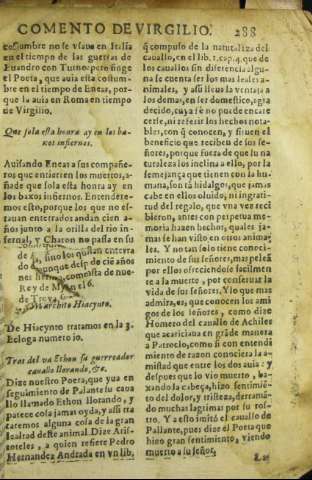 COMENTO DE VIRGILIO. 288
costumbre no se vsaua en Italia
en el tiempo de las guerras de
Euandro con Turno: pero finge
el Poeta, que auia esta costum-
bre en el tiempo de Eneas, por-
que la auia en Roma en tiempo
de Virgilio.
Que sola esta honra ay en los ba-
xos infiernos.
Auisando Eneas a sus compañe-
ros que entierren los muertos, a-
ñade que sola esta honra ay en
los baxos infiernos. Entendere-
mos esto, porque los que no es-
tauan enterrados andan cien a-
ños junto a la orilla del rio in-
fernal, y Charon no passa en su
sino los q̃ estan enterra
Rey de
de Troya
Marchito Hiacynto.
De Hiacynto tratamos en la 3.
Ecloga numero 10.
Tras del va Ethon su guerreador
cauallo llorando, &c.
Dize nuestro Poeta, que yua en
seguimiento de Palante su caua
llo llamado Ethon llorando, y
parece cosa jamas oyda, y assi tra
taremos alguna cosa de la gran
lealtad deste animal. Dize Aris-
toteles, a quien refiere Pedro
Hernandez Andrada en vn lib.
q̃ compuso de la naturaleza del
cauallo, en el lib. 1. cap. 4. que de
los cauallos sin diferencia algu-
na se cuenta ser los mas leales a-
nimales, y assi lleua la ventaja a
los demas, en ser domestico, y gra
decido, cuya fè no puede encare
cerle, ni referir los hechos nota-
bles, con q̃ conocen, y siruen el
beneficio que reciben de sus se-
ñores, porque fuera de que su na
turaleza los inclina a ello, por la
semejança que tienen con la hu-
mana, son tã hidalgos, que jamas
cabe en ellos oluido, ni ingrati-
tud del regalo, que vna vez reci
bieron, antes con perpetua me-
moria hazen hechos, quales ja-
mas se han visto en otros anima-
les. Y no tan solo tiene conoci-
miento de sus señores, mas pelean
por ellos ofreciendose facilmen
te a la muerte, por conseruar la
vida de sus señores. Y lo que mas
admira, es, que conocen los ami
gos de los señores, como dize
Homero del cauallo de Achiles
que acariciaua en grãde manera
a Patroclo, como si con entendi
miento de razon conociera la a-
mistad que entre los dos auia: y
despues que lo vio muerto, ba-
xando la cabeça, hizo sentimiẽ-
to del dolor, y tristeza, derramã-
do muchas lagrimas por su ros-
tro. Y a esto imitò el cauallo de
Pallante, pues dize el Poeta que
hizo gran sentimiento, viendo
muerto a su señor.